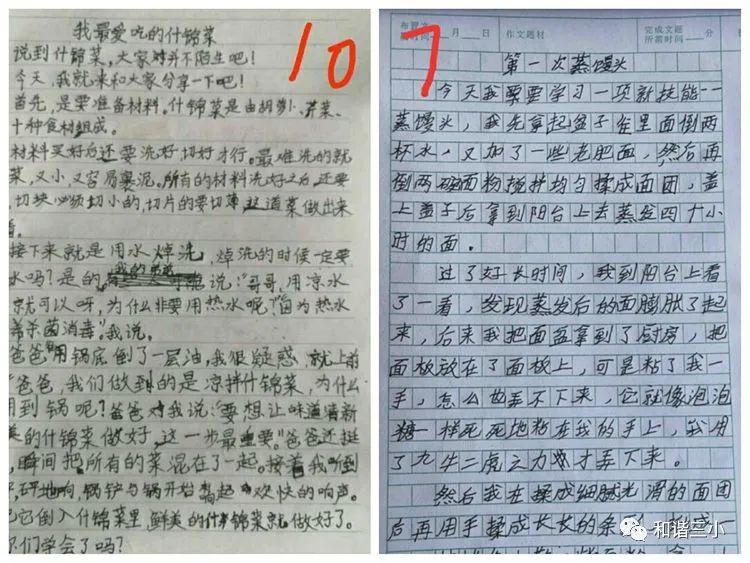 我最爱吃的什锦菜
10
说到什锦菜,大家对并不陌生吧!
今天,我就来和大家分享一下吧!
首先,是要准备材料。什锦菜是由胡萝卜、芹菜、
十种食材组成。
材料买好后还要洗好,切好才行。最难洗的就
菜,又小,又容易裹泥,所有的材料洗好之后,还要
切块必须切小的,切片的要切薄,这道菜做出来
接下来就是用水焯洗,焯洗的时候一定要
水吗?是的,说:"哥哥,用凉水
就可以呀,为什么非要用热水呢?""因为热水
杀菌消毒。"我说。
爸爸用锅底倒了一层油,我很疑惑,就上前
"爸爸,我们做到的是凉拌什锦菜,为什么
用到锅呢?"爸爸对我说:"要想让味道清新
美的什锦菜做好,这一步最重要。"爸爸还挺
瞬间把所有的菜混在了一起。接着我听到
砰地响,锅铲与锅开始奏起欢快的响声。
它倒入什锦菜里,鲜美的什锦菜就做好了。
你们学会了吗?
7
月 日 作文题材 完成文题
所需时间 分
第一次蒸馒头
今天我要学习一项新技能——
蒸馒头,我先拿起盆子往里面倒两
杯水,又加了一些老肥面,然后再
倒两碗面粉搅拌均匀揉成面团,盖
上盖子后拿到阳台上去蒸发四十小
时的面。
过了好长时间,我到阳台上看
了一看,发现蒸发后的面膨胀了起
来,后来我把面盆拿到了厨房,把
面板放在了面板上,可是粘了我一
手,怎么也弄不下来,它就像泡泡
糖一样死死地粘在我的手上,我用
了九牛二虎之力才弄下来。
然后我在揉成细腻光滑的面团
后再用手揉成长长的条
和谐三小